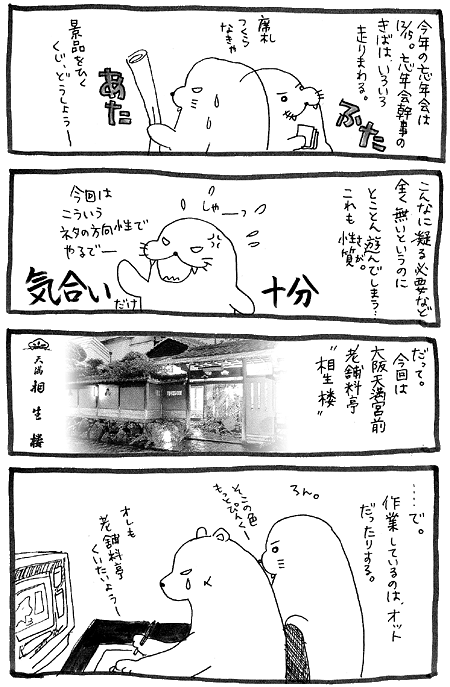 今年の忘年会は
12/15。忘年会幹事の
きばは、いろいろ
走りまわる。
ふた
席札
つくら
なきゃ
あた
景品をひく
くじ、どうしようー
こんなに凝る必要など
全く無いというのに
とことん遊んでしまう…
これも性質が。
さが
しゃーっ
今回は
こういう
ネタの方向性で
やるでー
気合い
だけ
十分
だって。
今回は
大阪天満宮前
老舗料亭
"相生楼"
天満
相生楼
……で。
作業しているのは、オット
だったりする。
ろん。
そこの色
もっとぴんくー
オレも
老舗料亭
くいたいようー